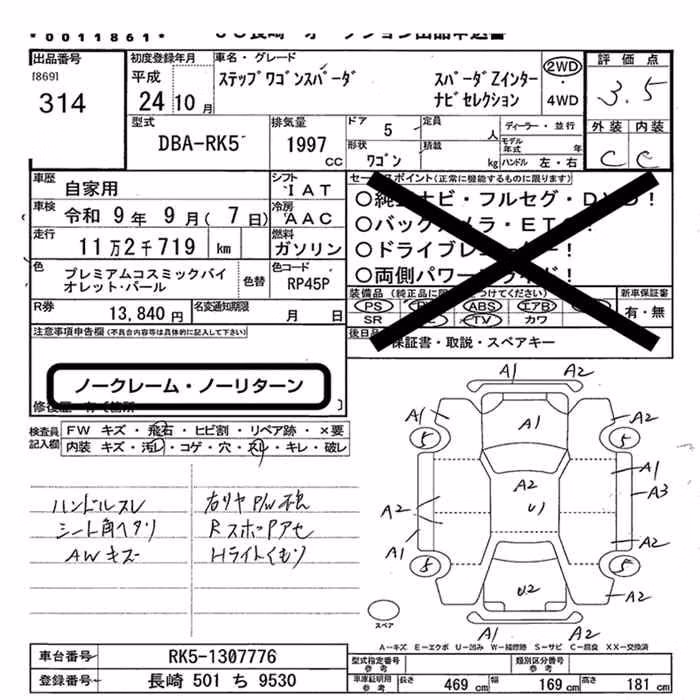 *0011861*
出品番号
[869]
314
初度登録年月
平成
24年10月
車名・グレード
ステップワゴンスパーダ
スパーダZインター
ナビセレクション
2WD
4WD
評価点
3.5
外装 内装
C C
型式
DBA-RK5
排気量
1997
CC
ドア 5
定員 人
形状
ワゴン
積載 kg
ディーラー・並行
モデル年式 年
ハンドル 左・右
車歴 自家用
シフト
IAT
車検 令和 9年 9月( 7日)
冷房
AAC
走行 11万2千719 km
燃料
ガソリン
色 プレミアムコスミックバイ
オレット・パール
色替
色コード
RP45P
R券 13,840円
名変通知期限 月 日
セールスポイント(正常に機能するものに限ります)
○純正ナビ・フルセグ・DVD!
○バックカメラ・ETC!
○ドライブレコーダー!
○両側パワースライド!
装備品
新車保証書
PS ABS エアB
SR TV カワ
有・無
後日品 保証書・取説・スペアキー
注意事項申告欄(不具合内容等は具体的に記入して下さい)
ノークレーム・ノーリターン
検査員
記入欄
FW キズ・飛石・ヒビ割・リペア跡・×要
内装 キズ・汚レ・コゲ・穴・スレ・キレ・破レ
ハンドルスレ
シート角ヘタリ
AWキズ
右リヤP/W不良
RスポッPアセ
Hライトくもり
A1 A2
A1 A1 A2
5 5
A1
A2 A3
A2 U1
A1 A2
5 5
U2 A2
A2
スペア
A-キズ E-エクボ U-凹み W-補修跡 S-サビ C-腐食 XX-交換済
車台番号 RK5-1307776
登録番号 長崎 501 ち 9530
型式指定番号
類別区分番号
参考
車庫証明用
参考
長さ 469cm 幅 169cm 高さ 181cm